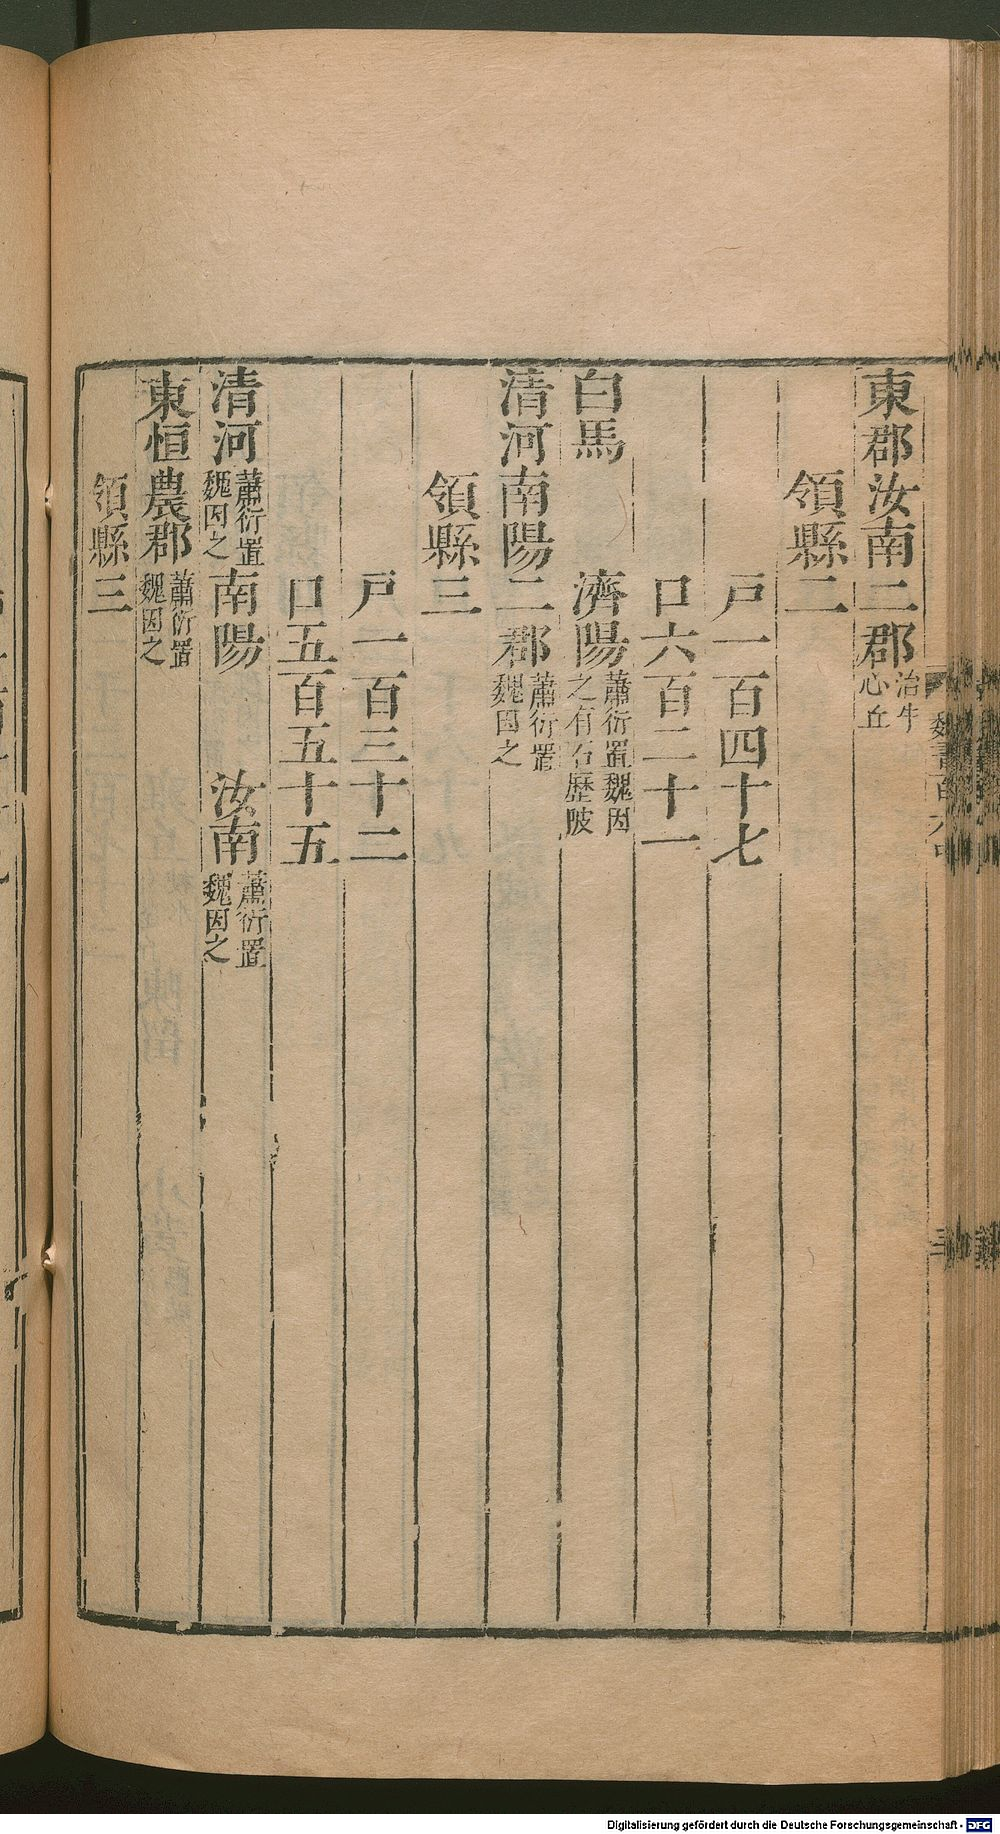 東郡汝南二郡治牛心丘
領縣二
戸一百四十七
口六百二十一
白馬 濟陽蕭衍置魏因之有石歷陂
清河南陽二郡蕭衍置魏因之
領縣三
戸一百三十二
口五百五十五
清河蕭衍置魏因之 南陽 汝南蕭衍置魏因之
東恒農郡蕭衍置魏因之
領縣三
Digitalisierung gefördert durch die Deutsche Forschungsgemeinschaft - DFG